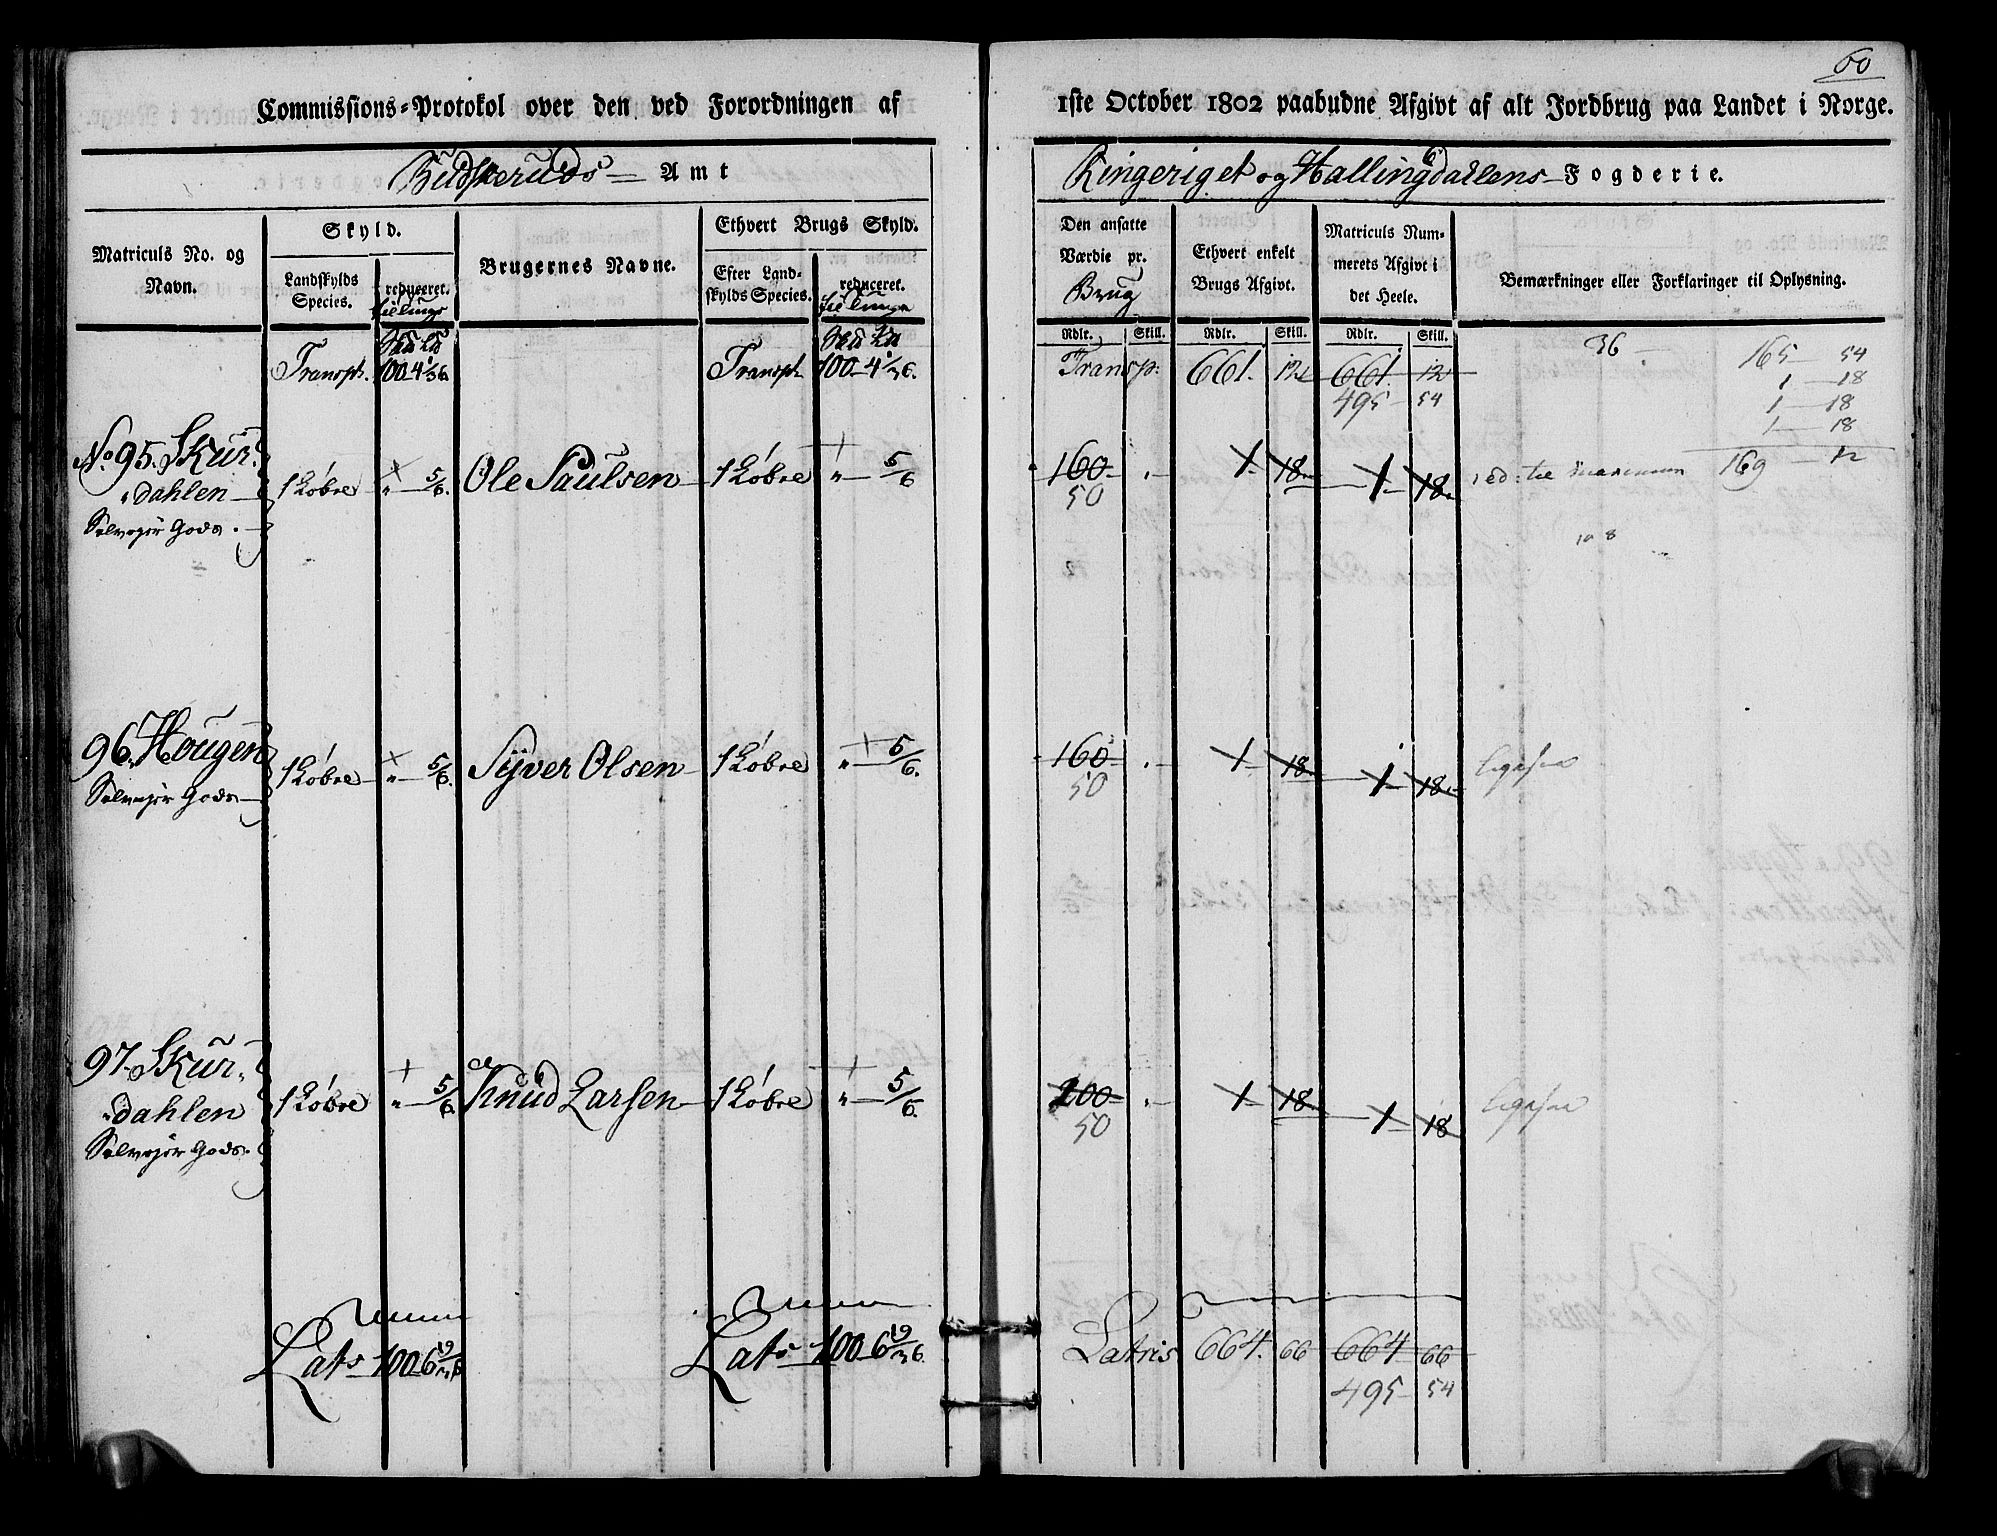 60
Commissions-Protokol over den ved Forordningen af 1ste October 1802 paabudne Afgivt af alt Jordbrug paa Landet i Norge.
Budskeruds Amt
Ringeriget og Hallingdallens Fogderie.
Matriculs No. og Navn.
Skyld.
Landskylds Species.
reduceret.
Brugernes Navne.
Ethvert Brugs Skyld.
Efter Landskylds Species.
reduceret.
Den ansatte Værdie pr. Brug
Ethvert enkelt Brugs Afgivt.
Matriculs Nummerets Afgivt i det Heele.
Bemærkninger eller Forklaringer til Oplysning.
Rdlr. Skill. Rdlr. Skill. Rdlr. Skill.
Transpt. 100 4 1/36. Transpt. 100 4 1/36. Transp: 661. 12 661. 12
495 54
36
165 54
1 18
1 18
1 18
169 12
No 95. Skur-
dahlen
Selvejer Gods.
1 Løbre " 5/6. Ole Paulsen 1 Løbre " 5/6 160 " 1 18. 1 18.
50
108
96. Hougen
Selvejer Gods
1 Løbre " 5/6. Syver Olsen 1 Løbre " 5/6. 160 " 1 18. 1 18. ligesaa
50
97. Skur-
dahlen
Selvejer Gods.
1 Løbre " 5/6. Knud Larsen 1 Løbre " 5/6. 100 " 1 18. 1 18 ligesaa
50
Lats 100 6 19/36 Lats 100 6 19/36. Latris 664. 66 664 66
495 54